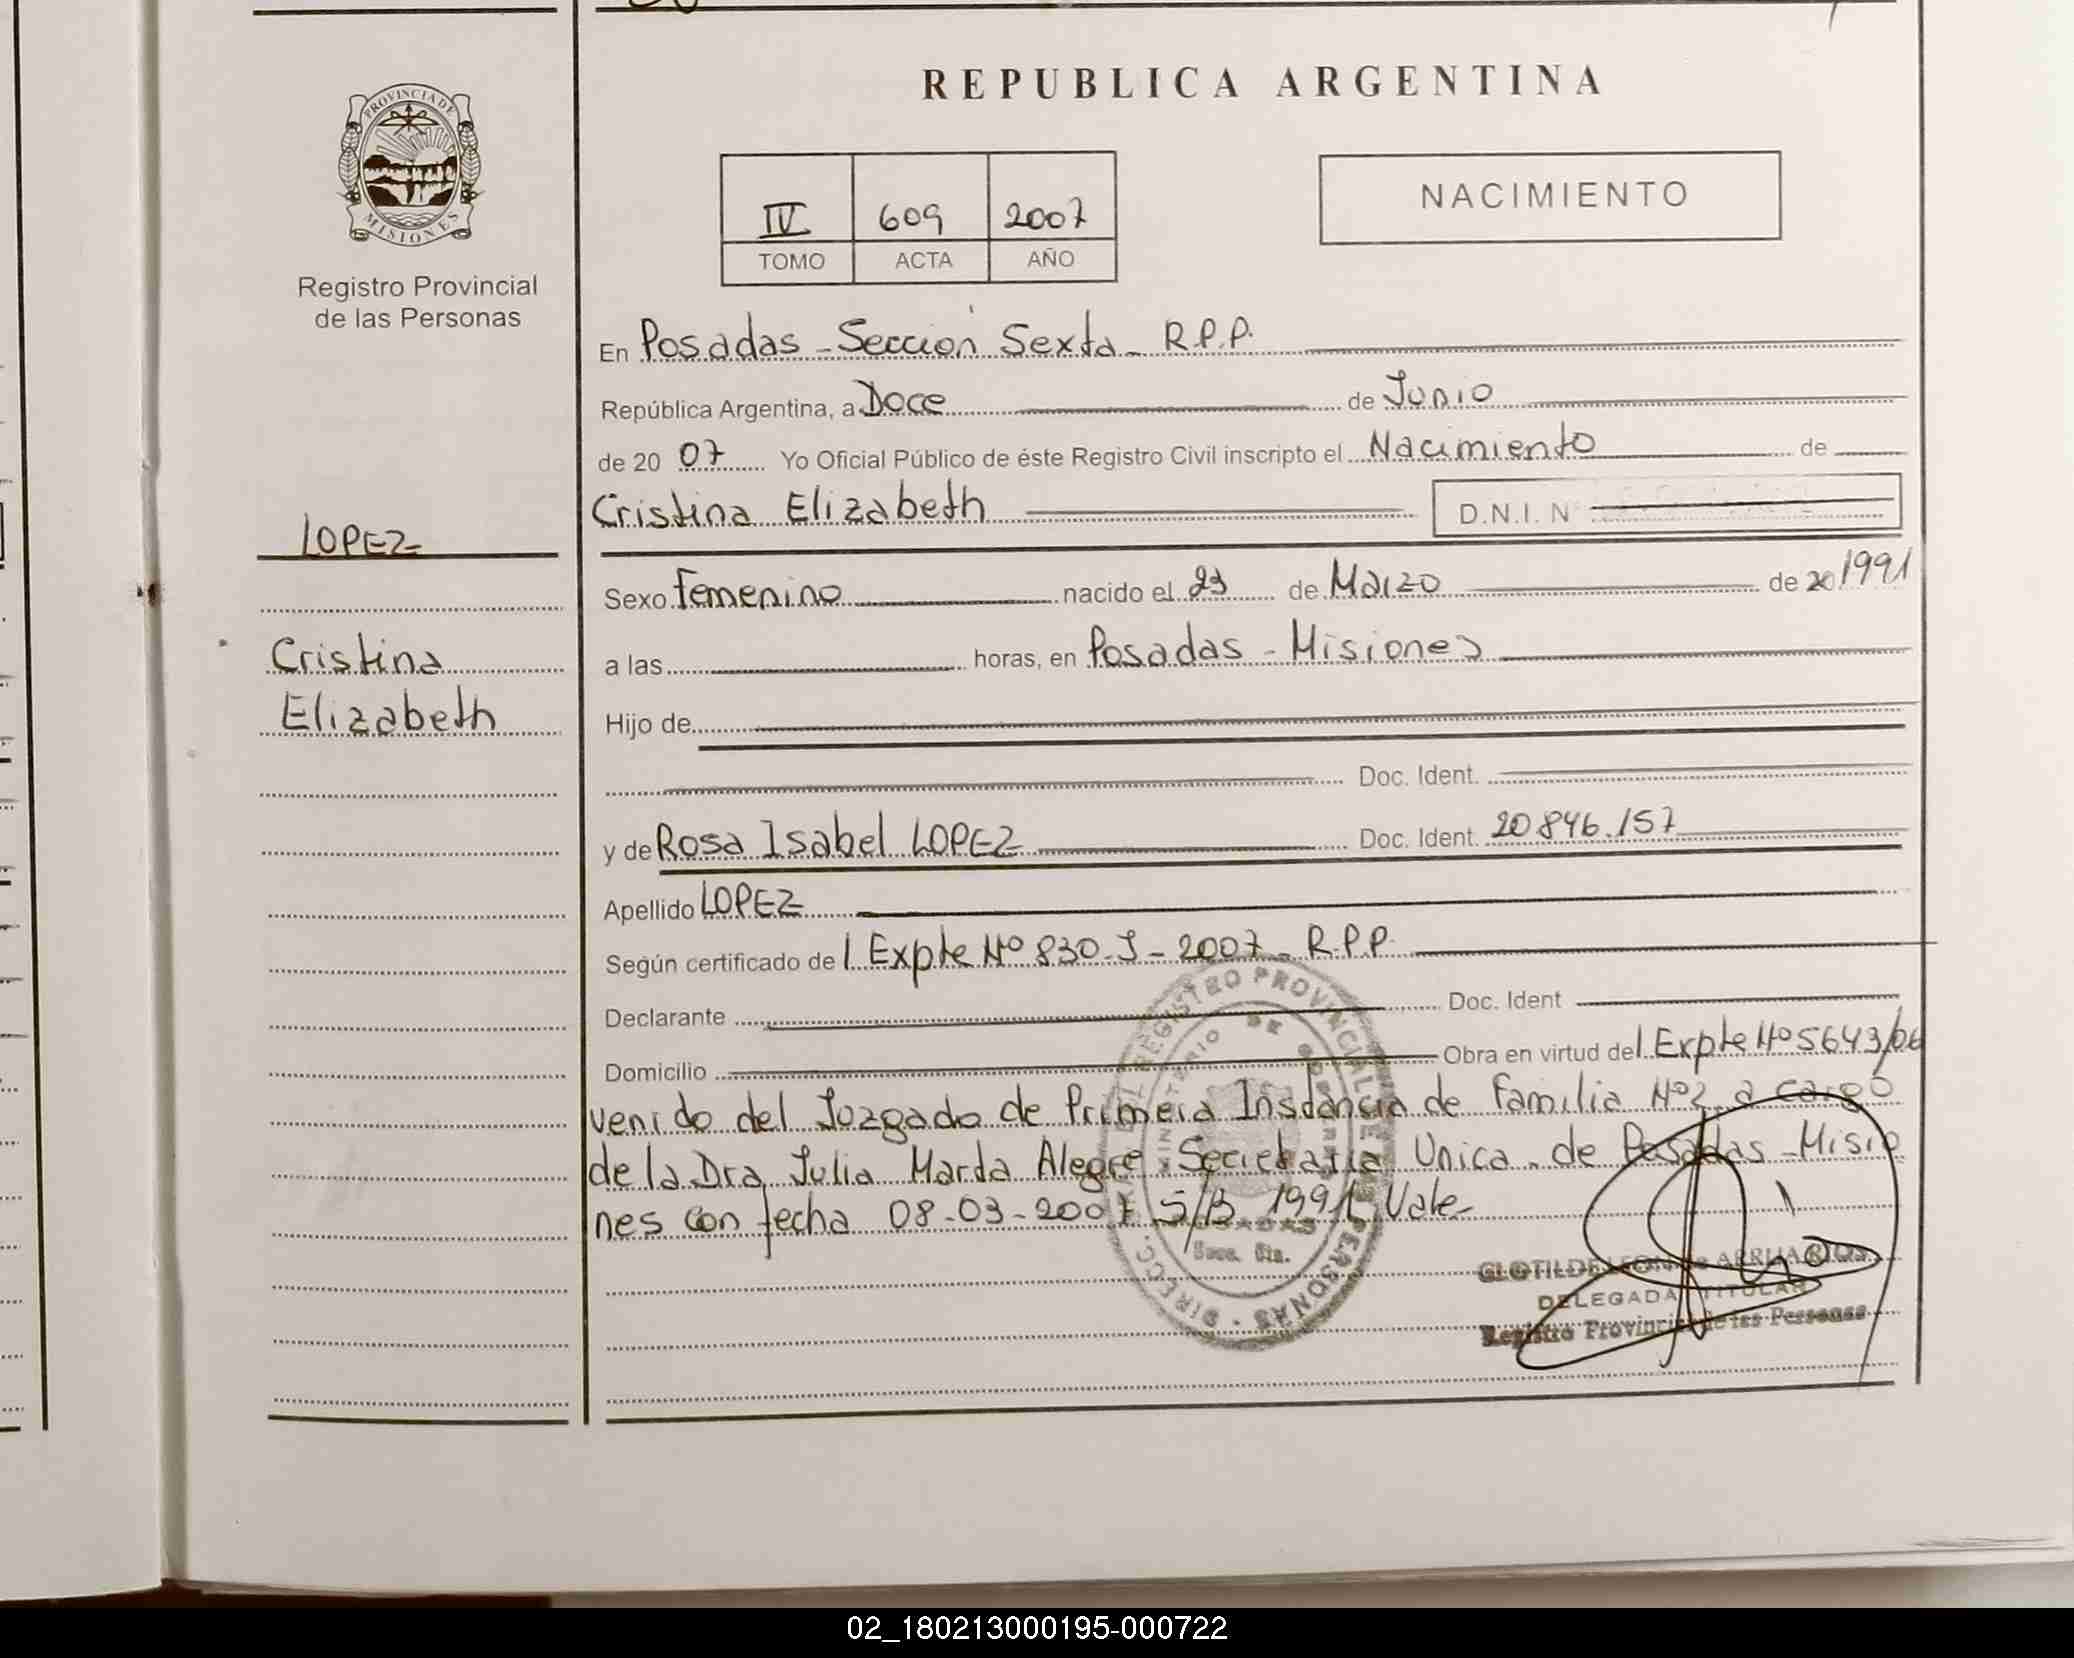 REPUBLICA ARGENTINA
PROVINCIA DE
MISIONES
Registro Provincial
de las Personas
IV 609 2007
TOMO ACTA AÑO
NACIMIENTO
En Posadas - Sección Sexta - R.P.P.
República Argentina, a Doce de Junio
de 20 07 Yo Oficial Público de éste Registro Civil inscripto el Nacimiento de
Cristina Elizabeth D.N.I. N
LOPEZ
Sexo Femenino nacido el 23 de Marzo de 20 1991
Cristina
a las horas, en Posadas - Misiones
Elizabeth
Hijo de
Doc. Ident.
y de Rosa Isabel LOPEZ Doc. Ident. 20846.157
Apellido LOPEZ
Según certificado de l Expte Nº 830-J-2007 - R.P.P.
Declarante Doc. Ident
Domicilio Obra en virtud del Expte Nº 5643/06
venido del Juzgado de Primera Instancia de Familia Nº 2 a cargo
de la Dra Julia Marta Alegre Secretaria Unica - de Posadas - Misio
nes con fecha 08-03-2007 S/B 1991 Vale-
DIRECC. GRAL. DEL REGISTRO PROVINCIAL DE LAS PERSONAS
MINISTERIO DE GOBIERNO
POSADAS
Secc. 6ta.
CLOTILDE LEON de
DELEGADA TITULAR
Registro Provincial de las Personas
02_180213000195-000722